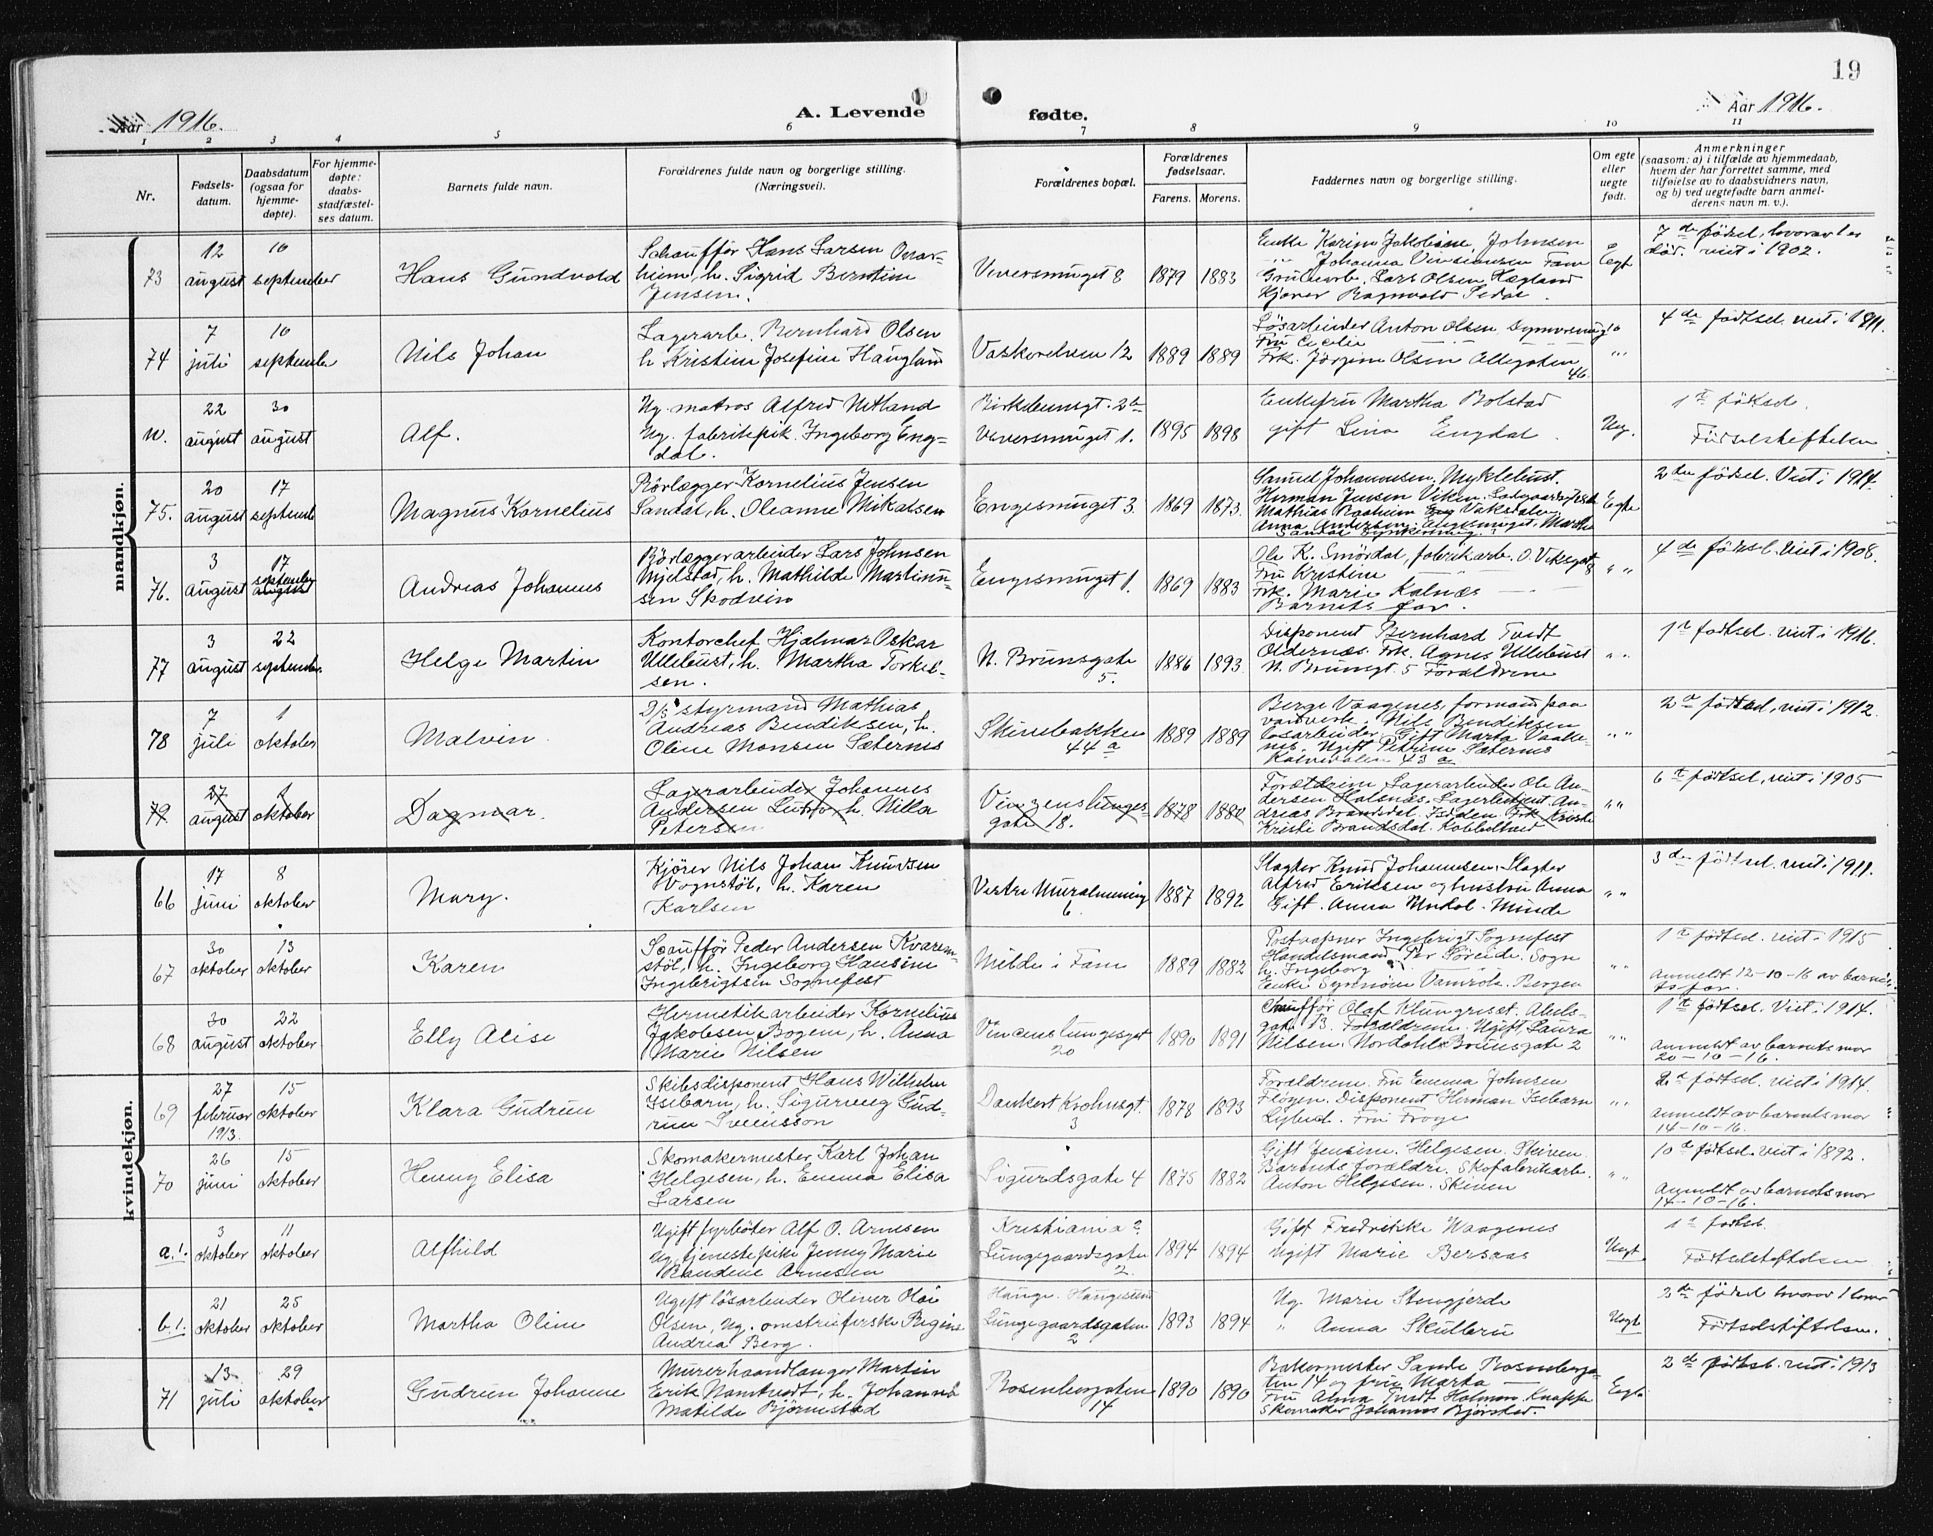 19
Aar 1916.
A. Levende
fødte.
Aar 1916.
1 2 3 4 5 6 7 8 9 10 11
Nr.
Fødsels-
datum.
Daabsdatum
(ogsaa for
hjemme-
døpte).
For hjemme-
døpte:
daabs-
stadfæstel-
ses datum.
Barnets fulde navn.
Forældrenes fulde navn og borgerlige stilling.
(Næringsvei).
Forældrenes bopæl.
Forældrenes
fødselsaar.
Farens. Morens.
Faddernes navn og borgerlige stilling.
Om egte
eller
uegte
født.
Anmerkninger
(saasom: a) i tilfælde av hjemmedaab,
hvem der har forrettet samme, med
tilføielse av to daabsvidners navn,
og b) ved uegtefødte barn anmel-
derens navn m. v.).
mandkjøn.
73
12
august
10
september
Hans Gundvold
Schauffør Hans Larsen Ovar-
hiem, h. Sigrid Berntine
Jensen.
Veversmuget 8
1879 1883
Enke Karine Jakobine Johnsen
Johanna
Lars Olsen Hegland
Kjører Ragnvald
Egt
7de fødsel, hvorav 1 er
død. viet i 1902.
74
7
juli
10
september
Nils Johan
Lagerarb. Bernhard Olsen
h. Kristine Josefine Hauglum
Vaskerelven 12
1889 1889
Løsarbeider Anton Olsen
Fru Cecilie
Frk. Jørgine Olsen Allegaten
46
" "
4de fødsel. viet i 1911.
w.
22
august
30
august
Alf.
Ug. matros Alfred Netland
Ug. fabrikpik. Ingeborg Eng-
dal.
Birkebeinsgt. 2b
Veversmuget 1.
1895 1898
Enkefru Martha Bolstad
gift Lina Engdal.
Ueg.
1te fødsel.
Fødselstiftelsen
75.
20
august
17
septembe
Magnus Kornelius
Rørlægger Kornelius Jensen
Sandal, h. Oleanne Mikalsen
Engesmuget 3.
1869 1873.
Samuel Johannesen Myklebust.
Herman Jensen Viken.
Mathias
Anna Andersen, Engesmuget. Marthe
Sandal
Egte
2den fødsel. Viet i 1914.
76.
3
august
17
september
august
Andreas Johannes
Rørlæggerarbeider Lars Johnsen
Mjelstad, h. Mathilde Martinu-
sen Skodvin
Engesmuget 1.
1869 1883
Ole K. Smørdal, fabrikarb. O. Viksgt 8
Fru Kristine
Frk. Marie Kalnæs
Barnets far.
" "
4de fødsel. viet i 1908.
77
3
august
22
september
Helge Martin
Kontorchef Hjalmar Oskar
Ullebust, h. Martha Torkel-
sen.
N. Brunsgate
5.
1886 1893
Disponent Bernhard Tvedt
Oldernæs. Frk. Agnes Ullebust
N. Brunsgt. 5 Forældrene
" "
1te fødsel. viet i 1916.
78
7
juli
1
oktober
Malvin
D/s styrmand Mathias
Andreas Bendiksen, h.
Oline Monsen Sæternes
Skivebakken
44 a
1889 1889
Berge Vaagenes, formann paa
vandverk. Nils Bendiksen
løsarbeider. Gift Marta Vaake-
nes. Ugift Petrine Sæternes
Kalvedalen 43 a
" "
2a fødsel, viet i 1912.
79
27
august
1
oktober
Dagmar.
Lagerarbeider Johannes
Andersen h. Nilla
Petersen
Vincenslunges-
gate 18.
1878 1880
Forældrene. Lagerarbeider Ole An-
dersen Halsnæs. Lagerbetjent An-
dreas Brandsdal. Frk. Kriste
Kristi Brandsdal. Kobbeltvedt
" "
6te fødsel, viet i 1905
kvindekjøn.
66
17
juni
8
oktober
Mary.
Kjører Nils Johan Knudsen
Vognstøl, h. Karen
Karlsen
Vestre Muralmening
6.
1887 1892
Slagter Knud Johannesen. Slagter
Alfred Eriksen og hustru Anna
Gift. Anna Minde
" "
3die fødsel. viet i 1911.
67
30
oktober
13
oktober
Karen
Scauffør Peder Andersen Kvarem-
støl, h. Ingeborg Hansine
Ingebrigtsen Sognefest
Milde i Fane
1889 1882
Postvapner Ingebrigt Sognefest
Handelsmand Per Søreide. Sogn
h. Ingeborg
Enke Synnøve Bergen
" "
1te fødsel. viet i 1915
Anmeldt 12-10-16 av barne-
ts far.
68
30
august
22
oktober
Elly Alise
Hermetikarbeider Kornelius
Jakobsen Bogen, h. Anna
Marie Nilsen
Vincenslungesgt
20
1890 1891
Chauffør Olaf Klungriset. Abels-
gate 13. Forældrene. Ugift Laura
Nilsen. Nordahl Brunsgate 2
" "
1te fødsel. Viet i 1914.
Anmeldt av barnets mor
20-10-16.
69
27
februar
1913.
15
oktober
Klara Gudrun
Skibsdisponent Hans Wilhelm
Isebarn, h. Sigurveig Gud-
run Sveinsson
Dankert Krohnsgt.
3
1878 1893
Forældrene. Fru Emma Johnsen
Fløyen. Disponent Herman Isebarn
Fru Frøge
" "
2d fødsel. viet i 1914.
anmeldt av barnets mor
14-10-16.
70
26
juni
15
oktober
Henny Elisa
Skomakermester Karl Johan
Helgesen, h. Emma Elisa
Larsen
Sigurdsgate 4
1875 1882
Gift Jensine Helgesen. Skiven
Barnets forældre. Skofabrikarb.
Anton Helgesen. Skiven
" "
10de fødsel. viet i 1892.
Anmeldt av barnets mor
14-10-16.
a.1.
3
oktober
11
oktober
Alfhild
Ugift fyrbøter Alf O. Arnesen
Ug. tjenestepike Jenny Marie
Arnesen
Kristiania?
Lungegaardsgaten
2.
1894 1894
Gift Fredrikke Waagenes
Ugift Marie Bersaas
Uegt.
1te fødsel.
Fødselstiftelsen
b.1.
21
oktober
25
oktober
Martha Oline
Ugift løsarbeider Oliver Olai
Olsen, Ug. omstreiferske Regine
Andrea Berg.
Hauge. Haugesund
Lungegaardsgaten
2
1893 1894
Ug. Marie Stengjerde
" Anna Skulleru
Uegt
2de fødsel hvorav 1 lever
Fødselstiftelsen.
71
13
juli
29
oktober
Gudrun Johanne
Murerhaandlanger Martin
Erik Namtvedt, h. Johanne
Matilde Bjørnestad
Rosenberggaten
14
1890 1890
Bakermester Sande Rosenberga-
ten 14 og fru Marta
Fru Anna Tvedt Holmen
Skomaker Johannes Bjørstad.
Egte
2de fødsel. viet i 1913